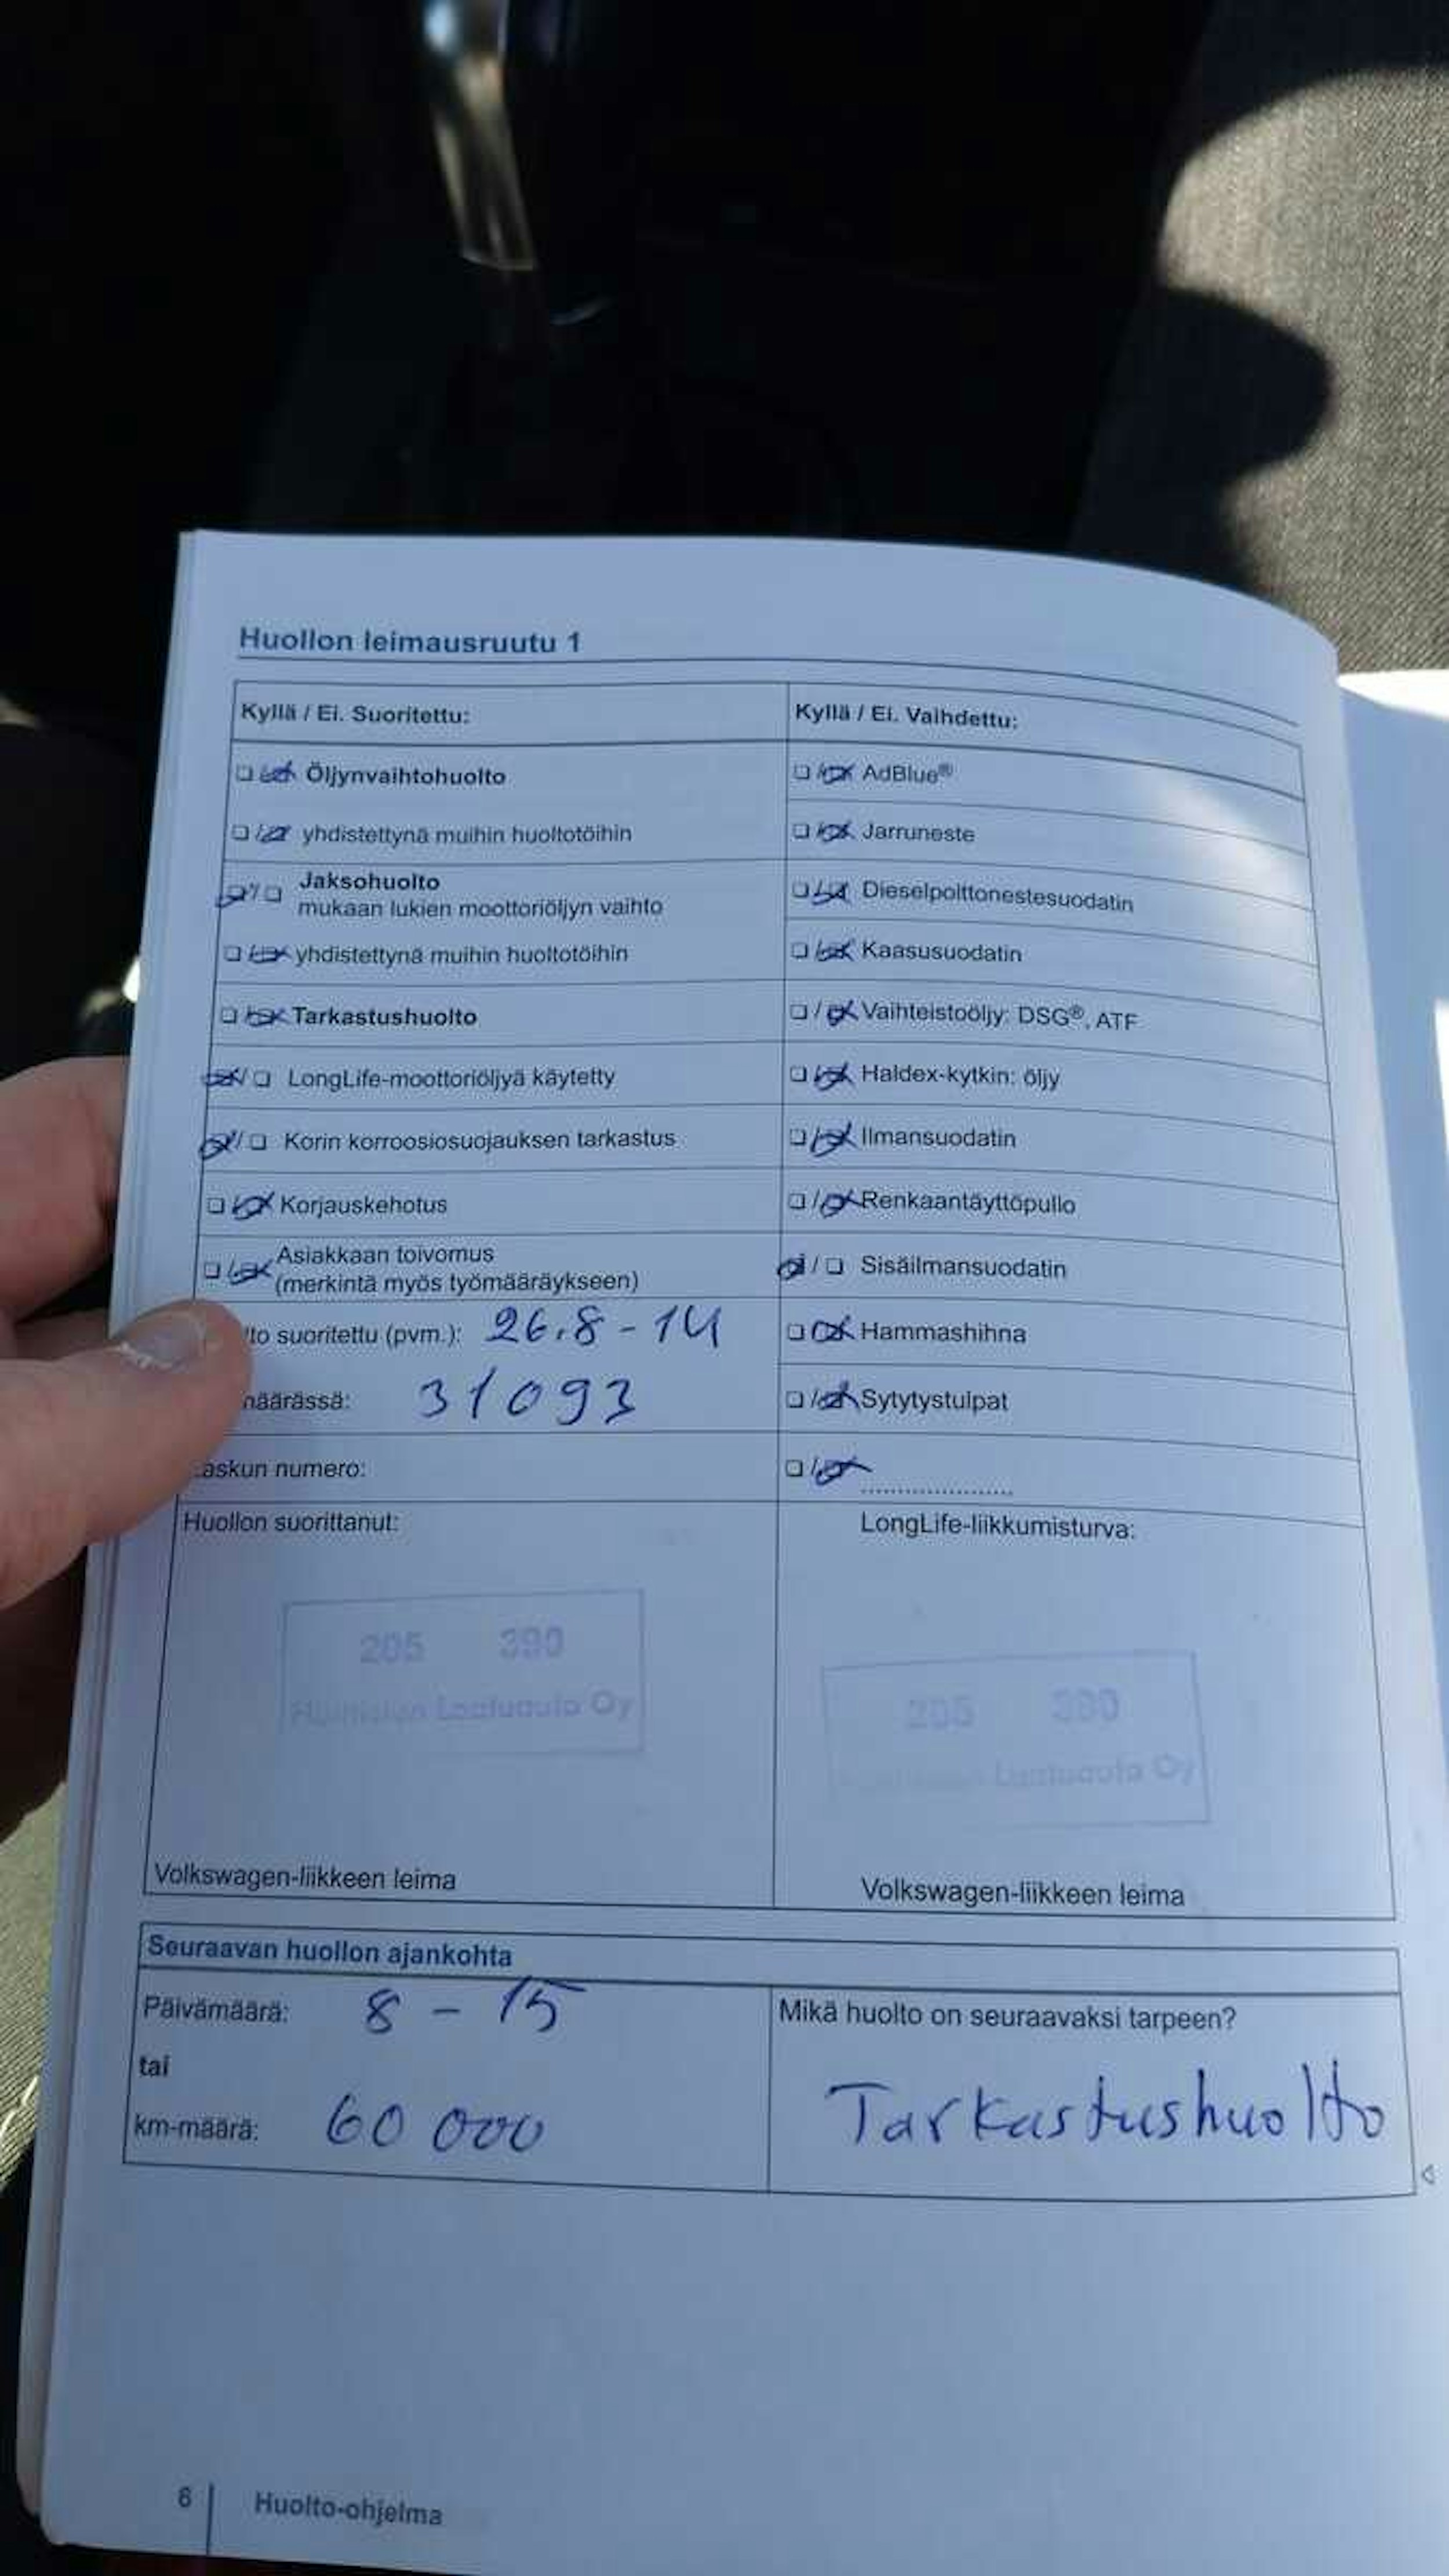 Huollon leimausruutu 1
Kyllä / Ei. Suoritettu:
Öljynvaihtohuolto
yhdistettynä muihin huoltotöihin
Jaksohuolto
mukaan lukien moottoriöljyn vaihto
yhdistettynä muihin huoltotöihin
Tarkastushuolto
LongLife-moottoriöljyä käytetty
Korin korroosiosuojauksen tarkastus
Korjauskehotus
Asiakkaan toivomus
(merkintä myös työmääräykseen)
lto suoritettu (pvm.): 26.8-14
määrässä: 31093
askun numero:
Kyllä / Ei. Vaihdettu:
AdBlue®
Jarruneste
Dieselpolttonestesuodatin
Kaasusuodatin
Vaihteistoöljy: DSG®, ATF
Haldex-kytkin: öljy
Ilmansuodatin
Renkaantäyttöpullo
Sisäilmansuodatin
Hammashihna
Sytytystulpat
Huollon suorittanut:
205 390
Laatuauto Oy
Volkswagen-liikkeen leima
LongLife-liikkumisturva:
205 390
Laatuauto Oy
Volkswagen-liikkeen leima
Seuraavan huollon ajankohta
Päivämäärä: 8 - 15
tai
km-määrä: 60 000
Mikä huolto on seuraavaksi tarpeen?
Tarkastushuolto
6 Huolto-ohjelma